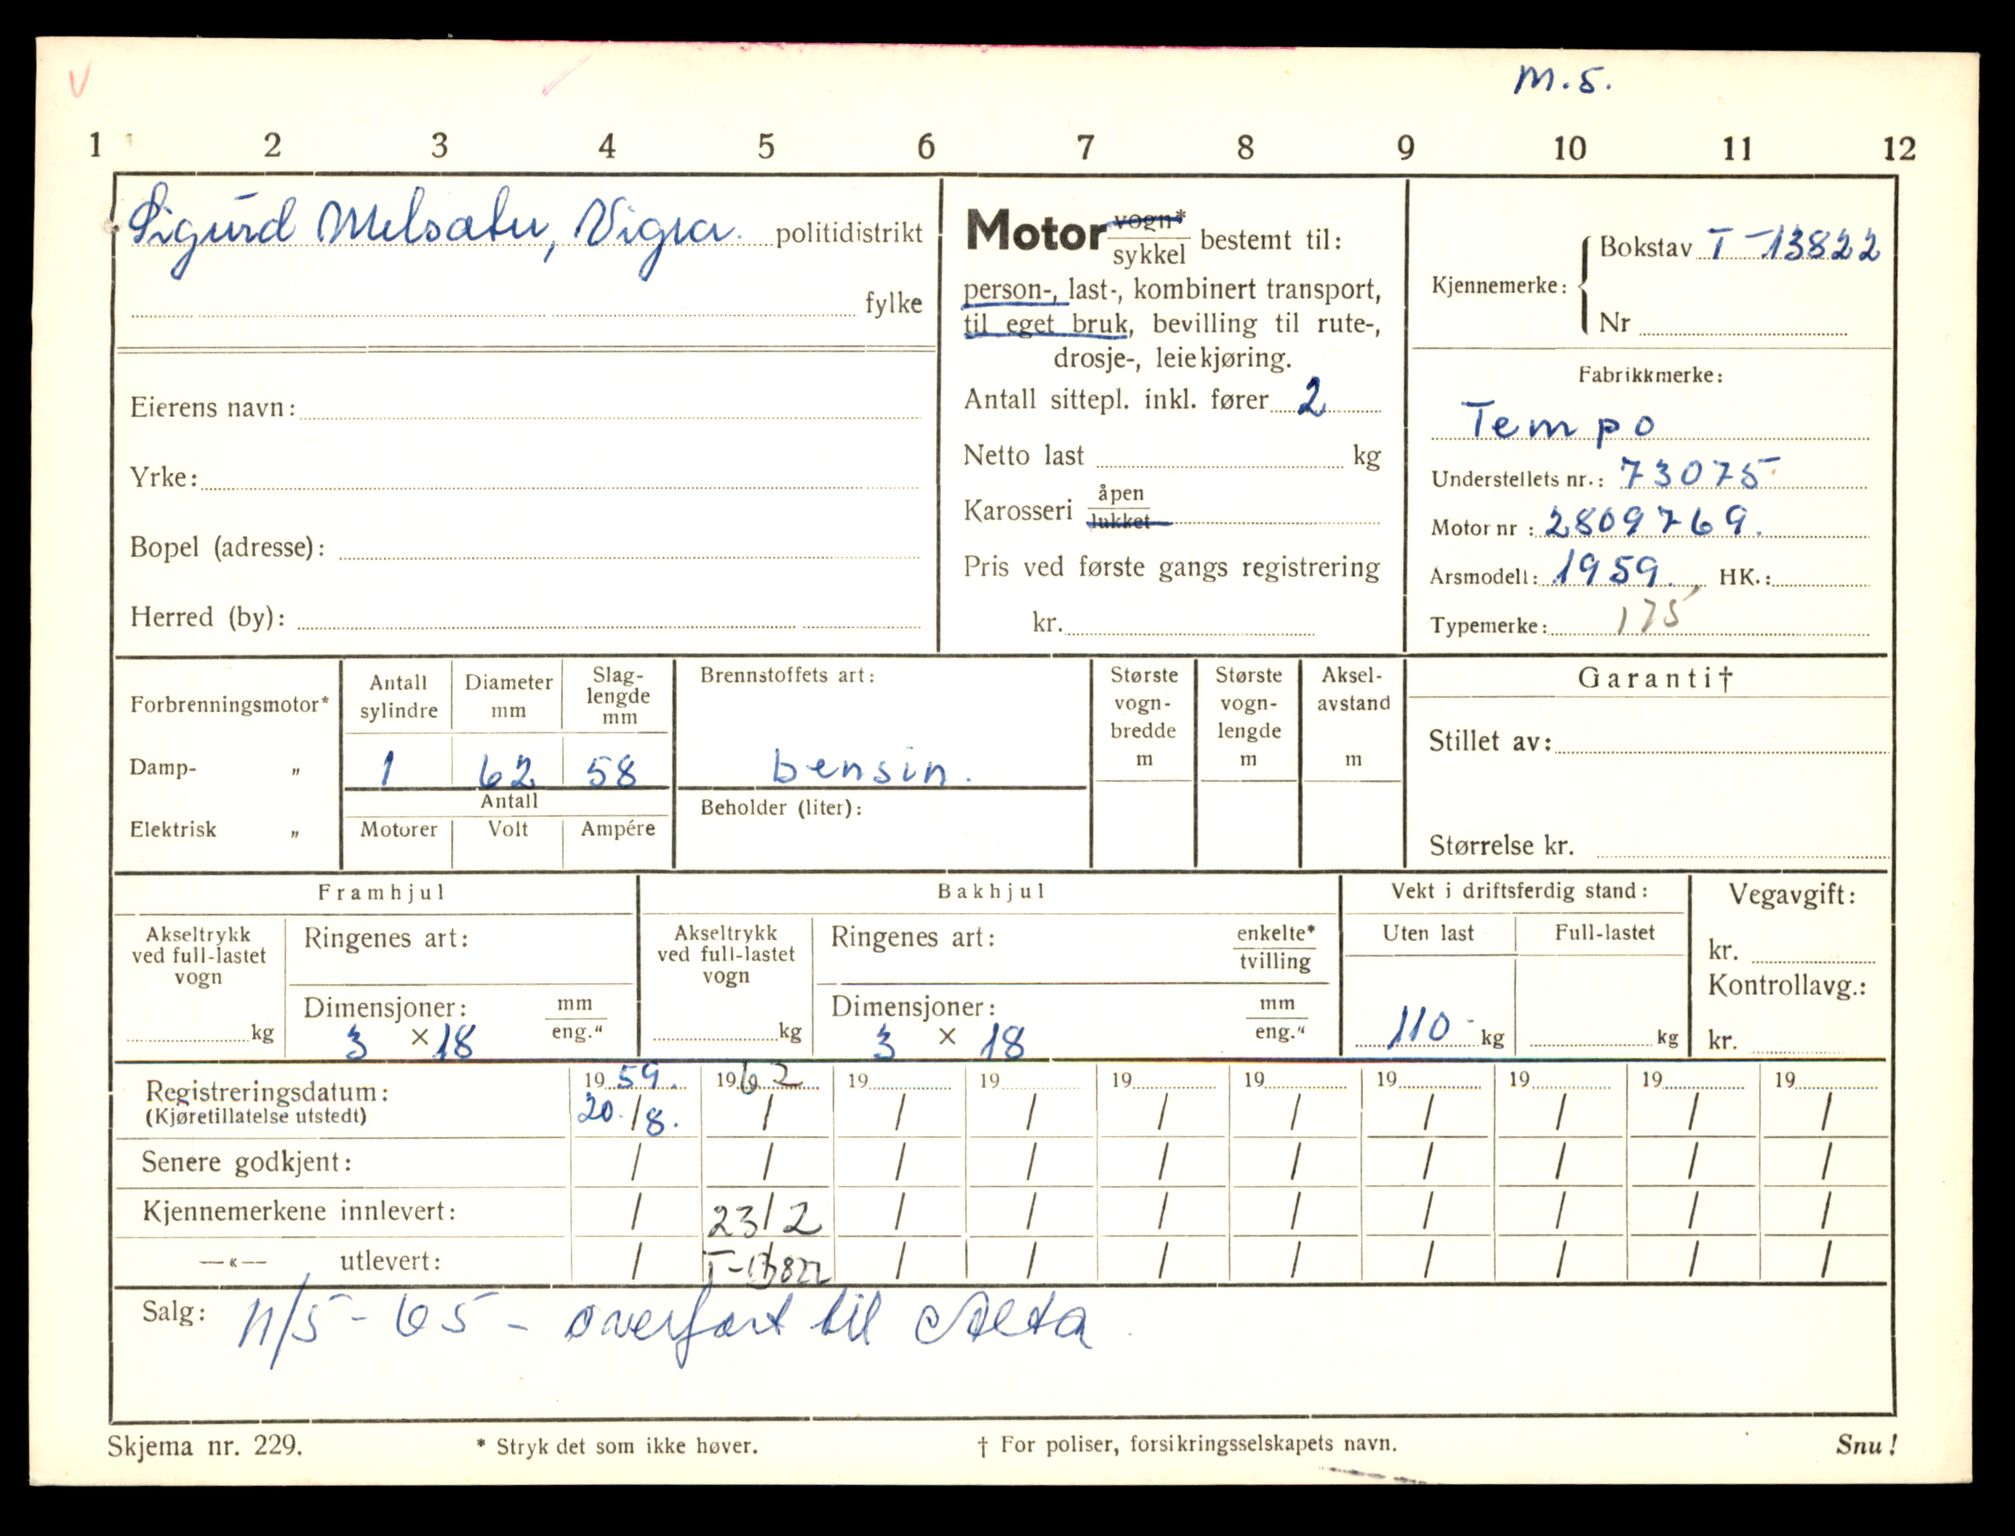 V
M.S.
1 2 3 4 5 6 7 8 9 10 11 12
Sigurd Melsæter, Vigra. politidistrikt
fylke
Eierens navn:
Yrke:
Bopel (adresse):
Herred (by):
Motor vogn* / sykkel bestemt til:
person-, last-, kombinert transport,
til eget bruk, bevilling til rute-,
drosje-, leiekjøring.
Antall sittepl. inkl. fører 2
Netto last kg
Karosseri åpen / lukket
Pris ved første gangs registrering
kr.
Kjennemerke: Bokstav T-13822
Nr
Fabrikkmerke:
Tempo
Understellets nr.: 73075
Motor nr : 2809769.
Årsmodell: 1959. HK.:
Typemerke: 175
Forbrenningsmotor*
Damp- "
Elektrisk "
Antall sylindre
1
Diameter mm
62
Slag-
lengde
mm
58
Antall
Motorer Volt Ampére
Brennstoffets art:
bensin.
Beholder (liter):
Største
vogn-
bredde
m
Største
vogn-
lengde
m
Aksel-
avstand
m
Garanti†
Stillet av:
Størrelse kr.
Framhjul
Akseltrykk
ved full-lastet
vogn
kg
Ringenes art:
Dimensjoner: mm / eng."
3 × 18
Bakhjul
Akseltrykk
ved full-lastet
vogn
kg
Ringenes art: enkelte* / tvilling
Dimensjoner: mm / eng."
3 × 18
Vekt i driftsferdig stand:
Uten last
110 kg
Full-lastet
kg
Vegavgift:
kr.
Kontrollavg.:
kr.
Registreringsdatum: 19 59. 19 62 19 19 19 19 19 19 19 19
(Kjøretillatelse utstedt) 20./8. / / / / / / / / /
Senere godkjent: / / / / / / / / / /
Kjennemerkene innlevert: / 23/2 / / / / / / / /
—«— utlevert: / T-13822 / / / / / / / /
Salg: 11/5-65 - overført til Alta.
Skjema nr. 229. * Stryk det som ikke høver. † For poliser, forsikringsselskapets navn. Snu!